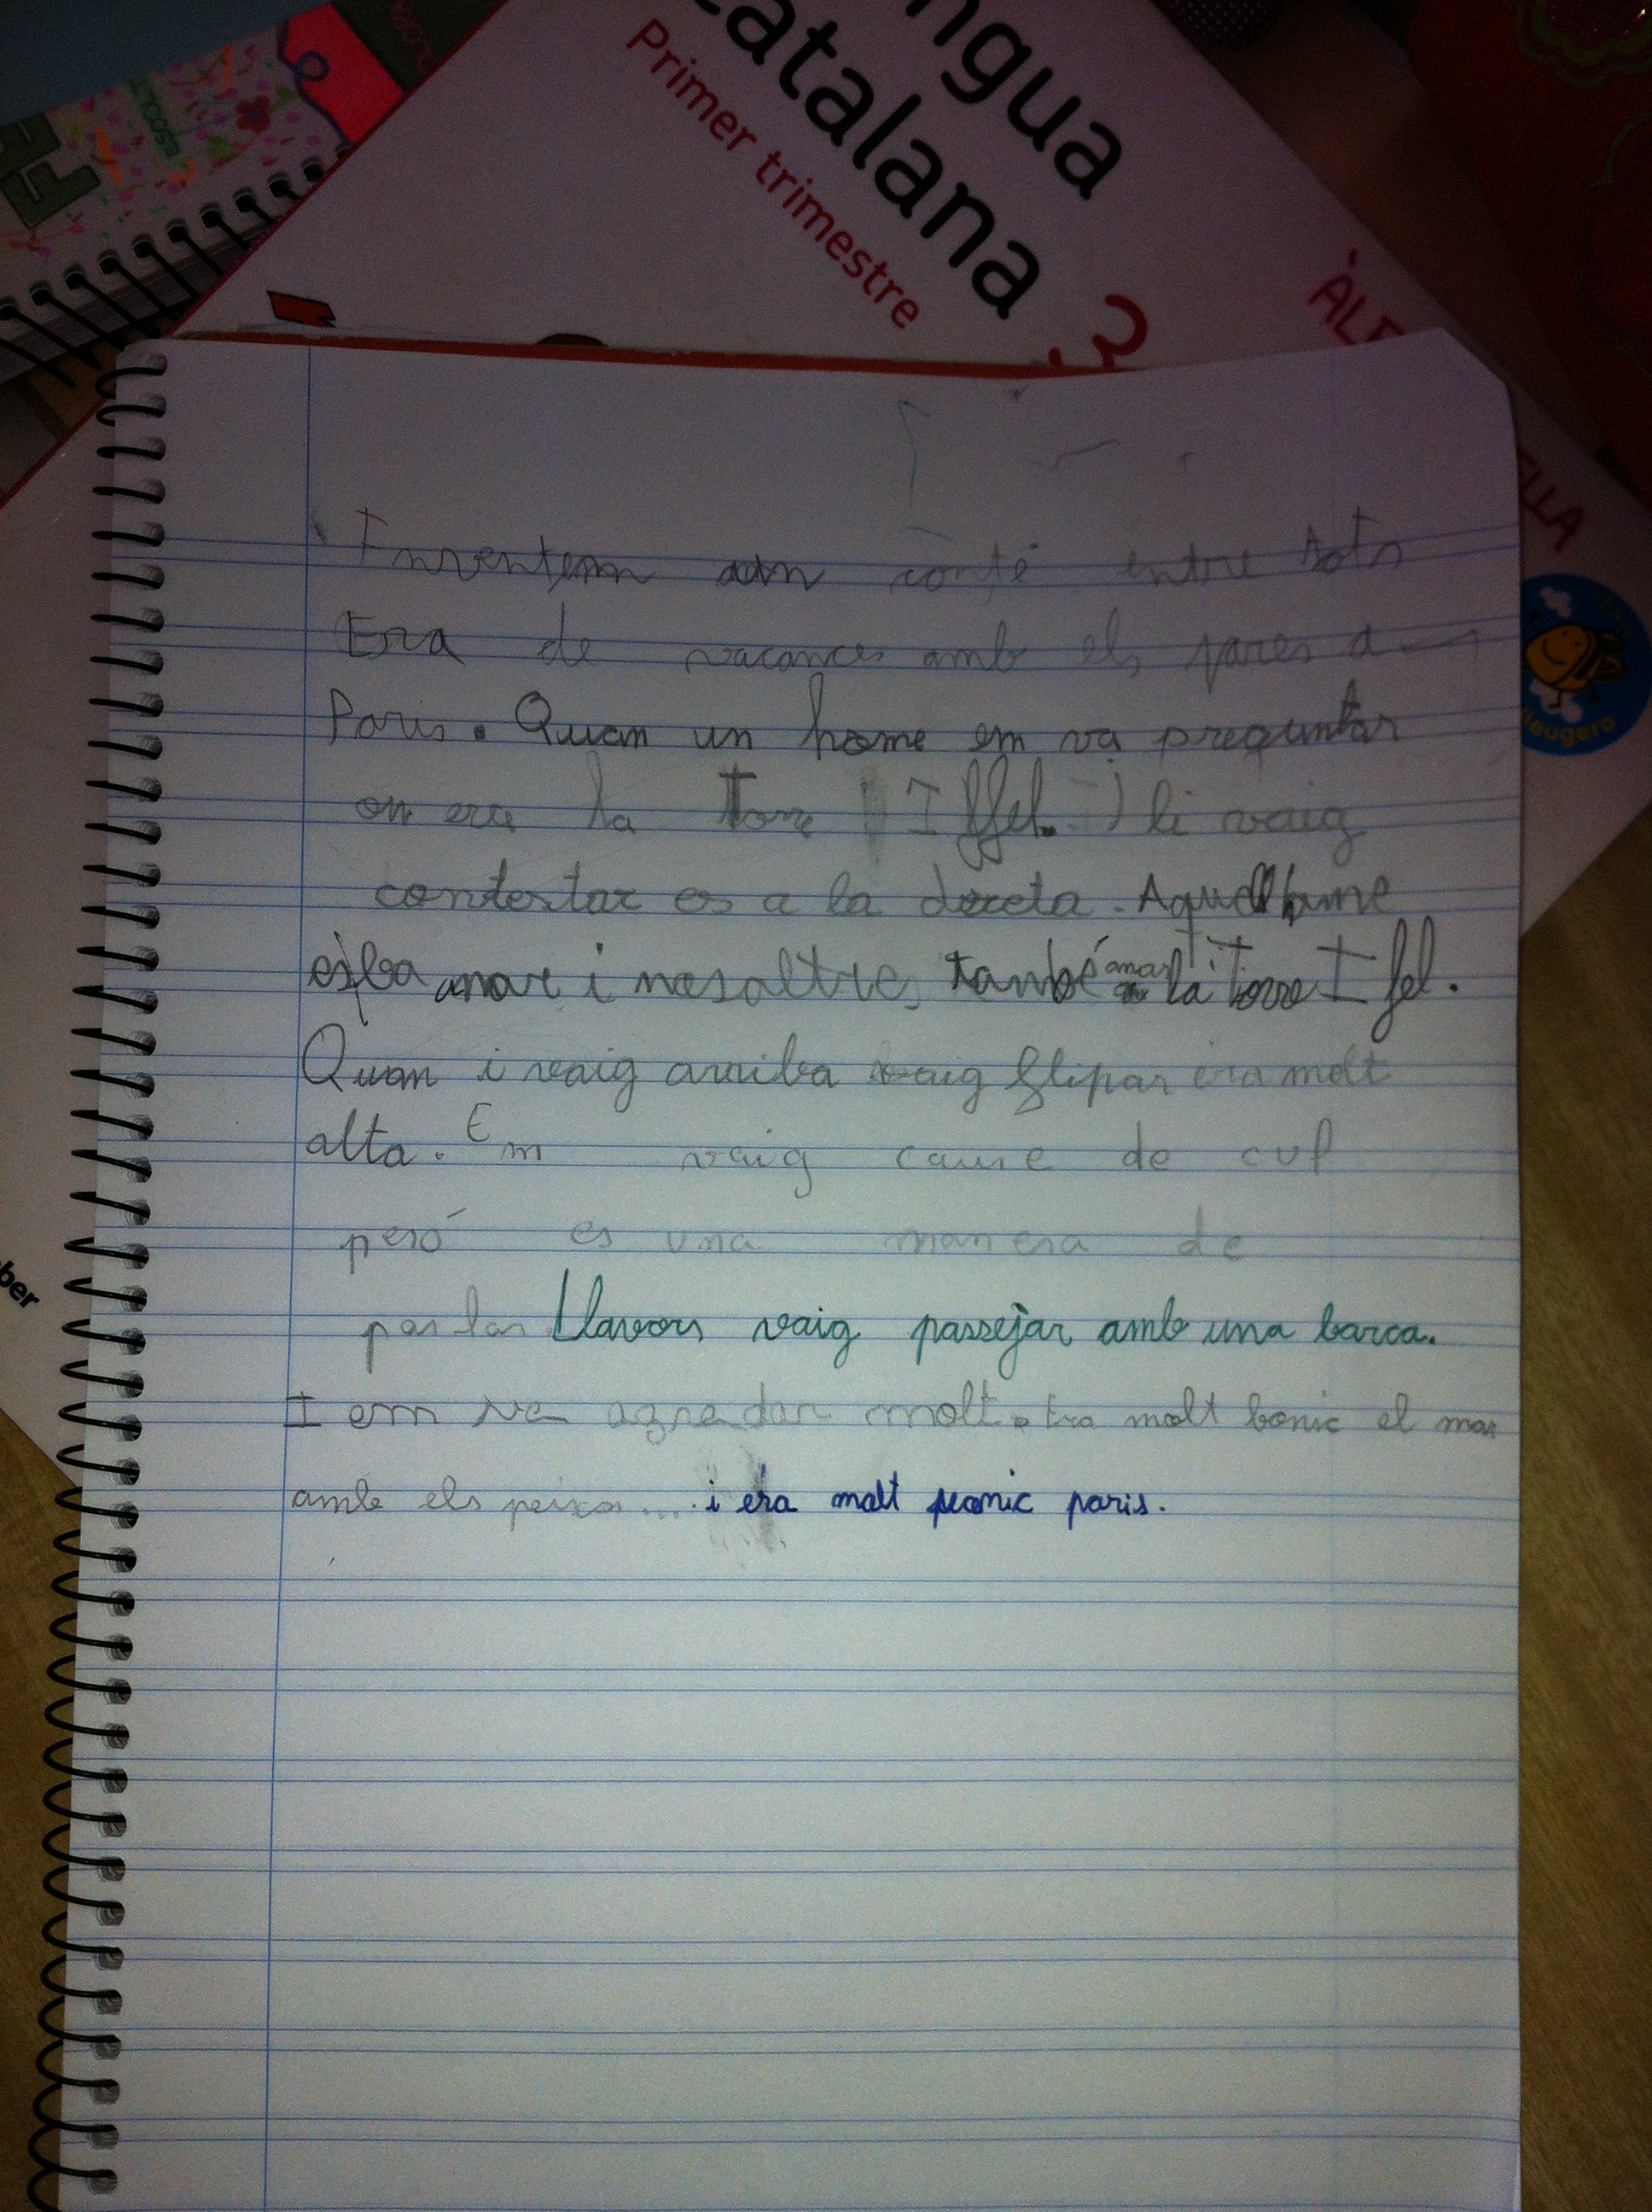 ngua
catalana 3
Primer trimestre
Inventem un conte entre tots
Era de vacances amb els pares a
Paris. Quan un home em va preguntar
on era la Torre Iffel. I li vaig
contestar es a la dreta. Aquell home
i nosaltres també anar a la Torre Ifel.
Quan i vaig arriba vaig flipar era molt
alta. Em vaig caure de cul
peró es una manera de
parlar. Llavors vaig passejar amb una barca.
I em va agradar molt. Era molt bonic el mar
amb els peixos.... i era molt bonic paris.
ber